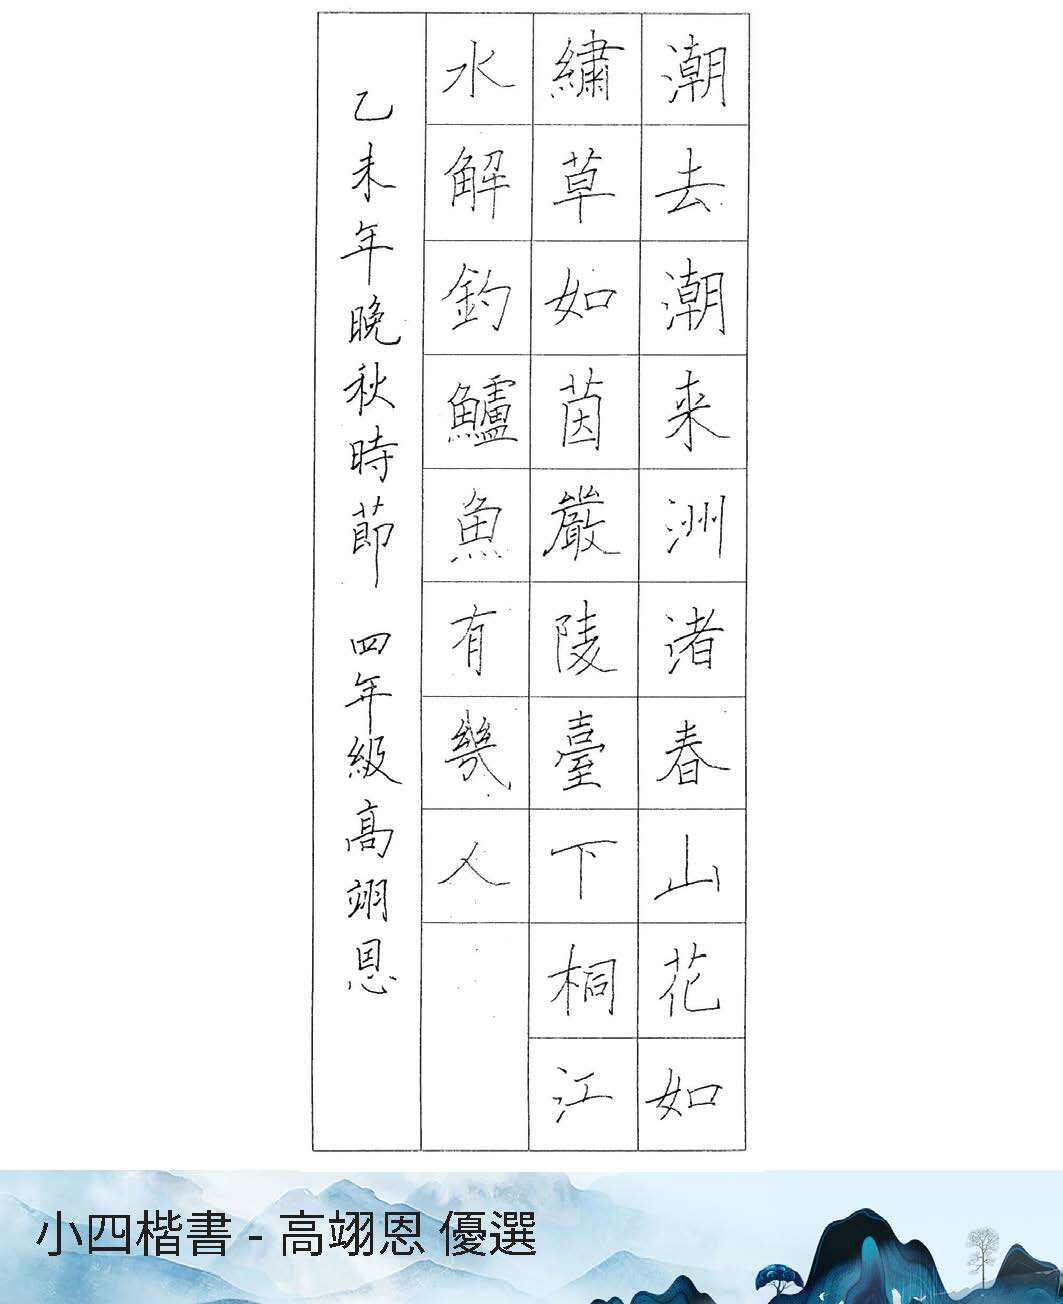 潮去潮来洲渚春山花如
繡草如茵嚴陵臺下桐江
水解釣鱸魚有幾人
乙未年晚秋時節 四年級高翊恩
小四楷書 - 高翊恩 優選